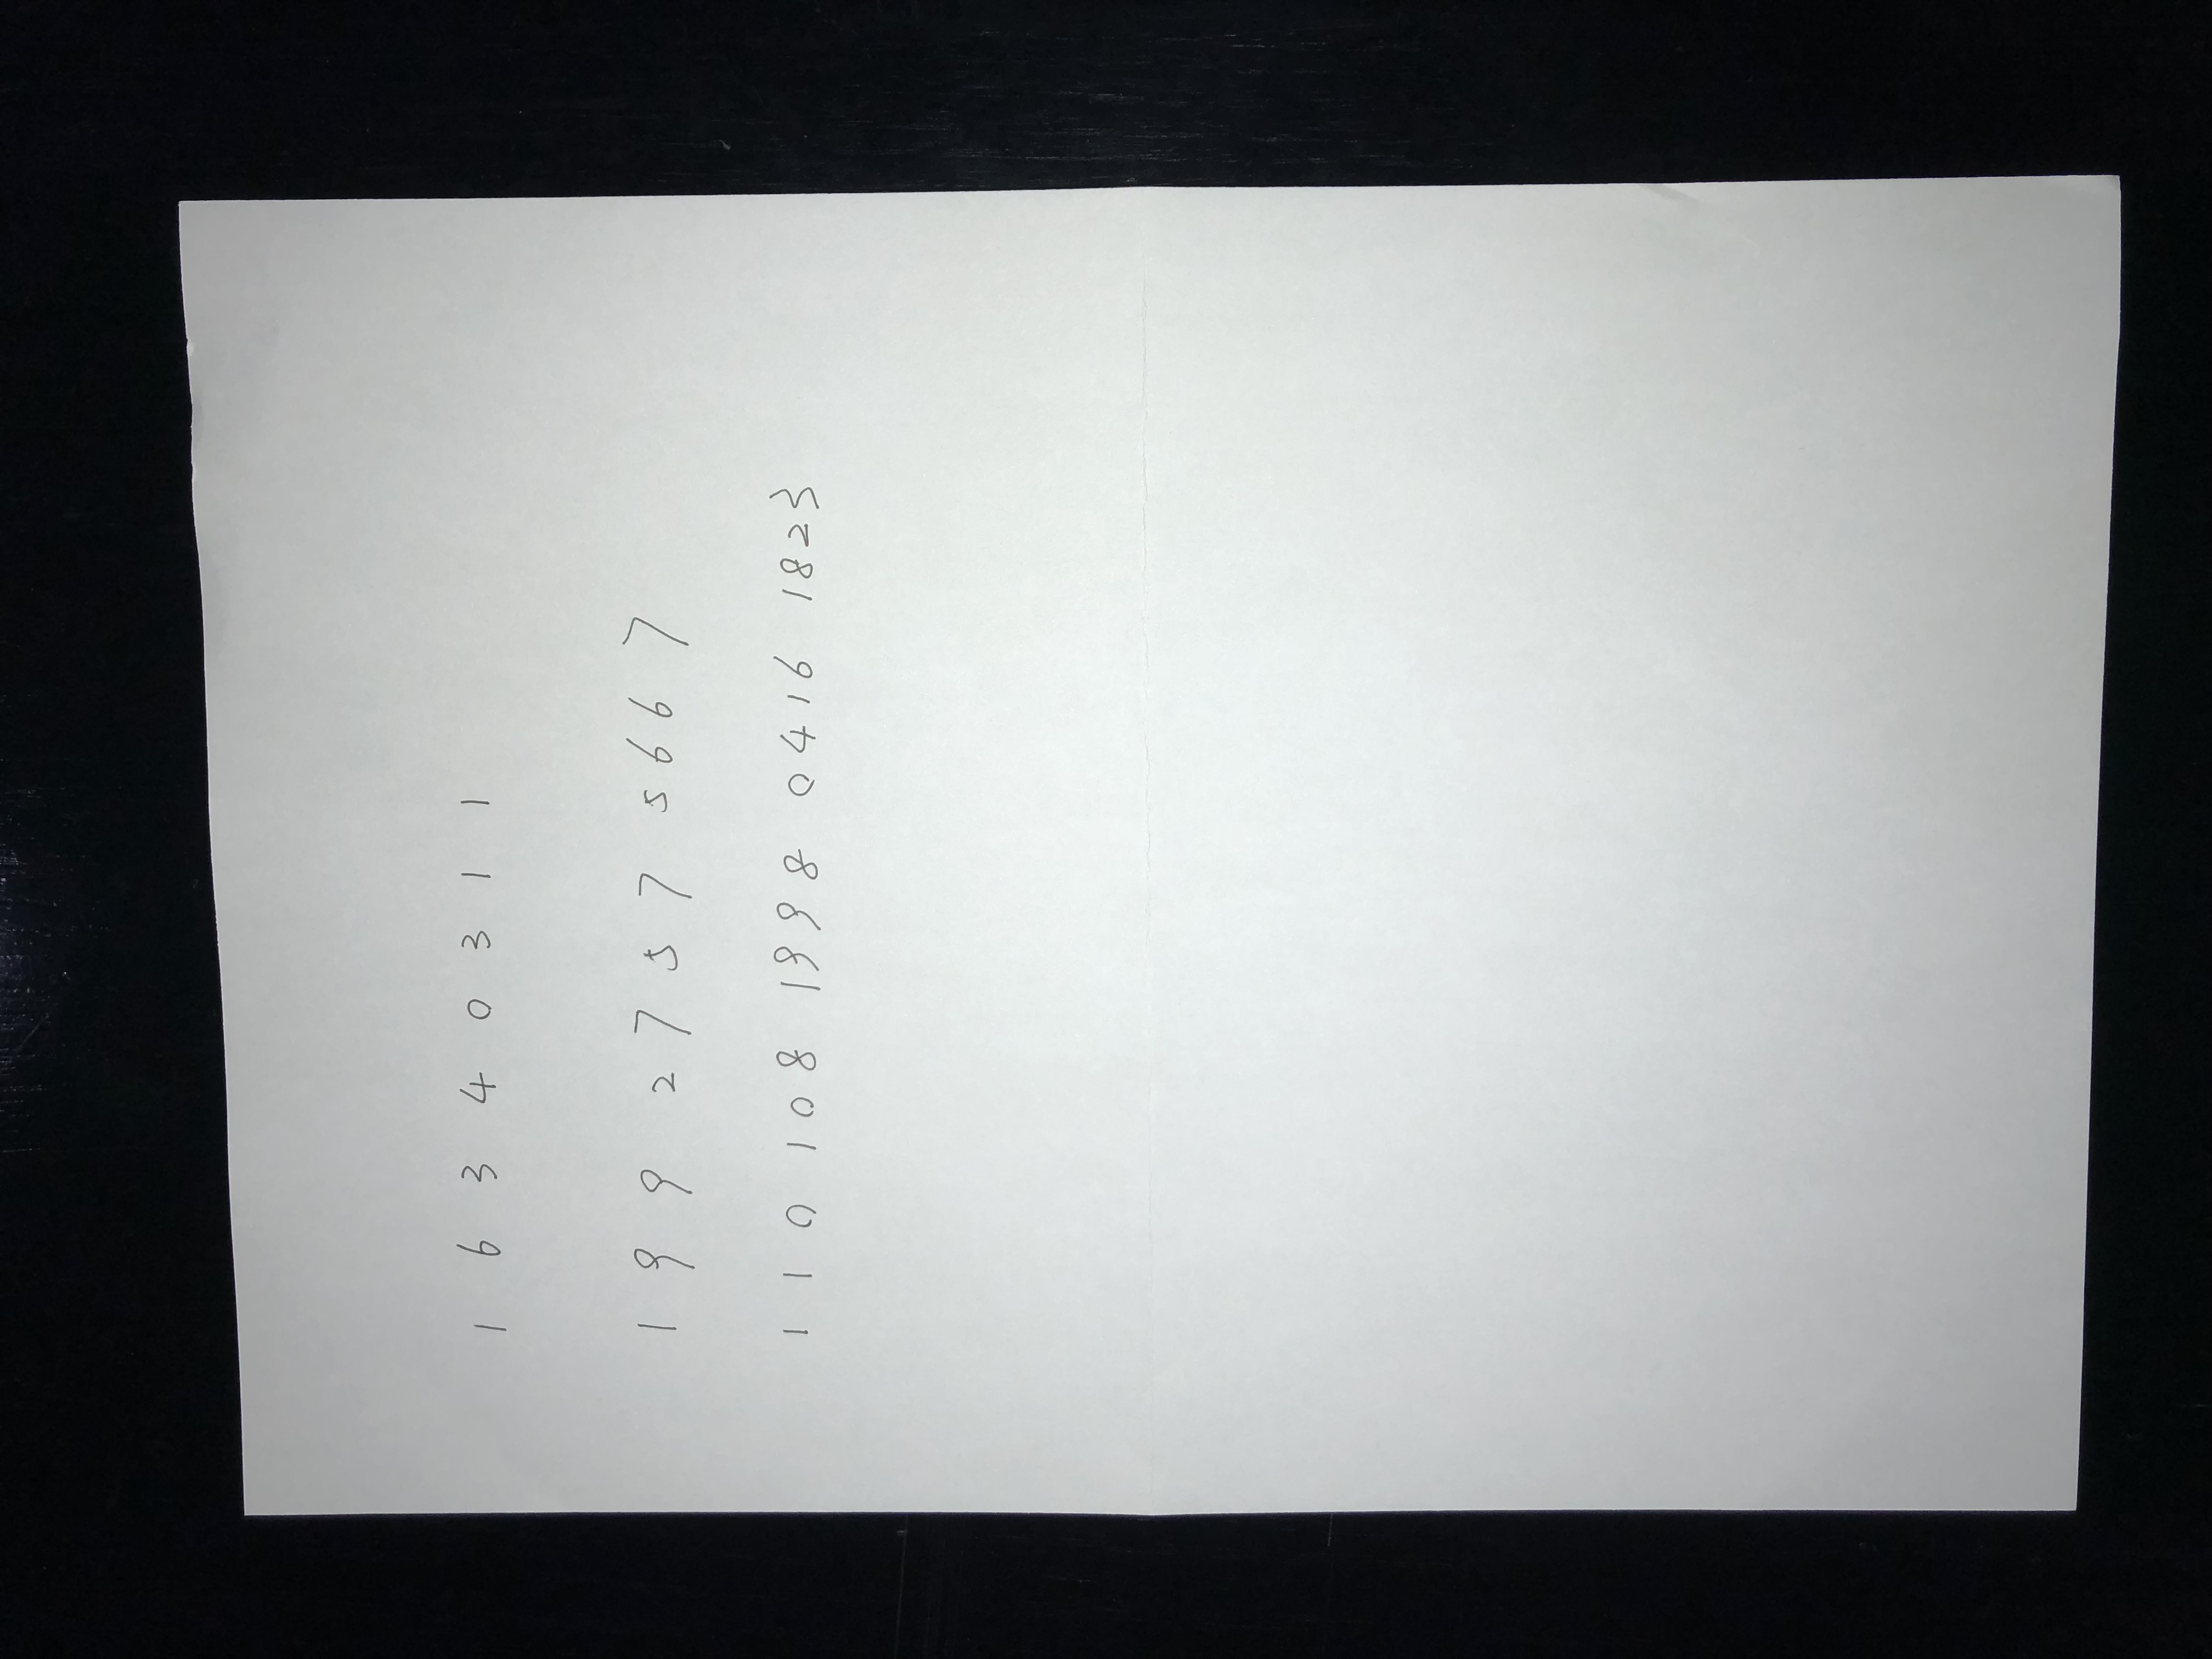 1 6 3 4 0 3 1 1
1 9 9 2 7 5 7 5 6 6 7
1 1 0 1 0 8 1 9 9 8 0 4 1 6 1 8 2 3